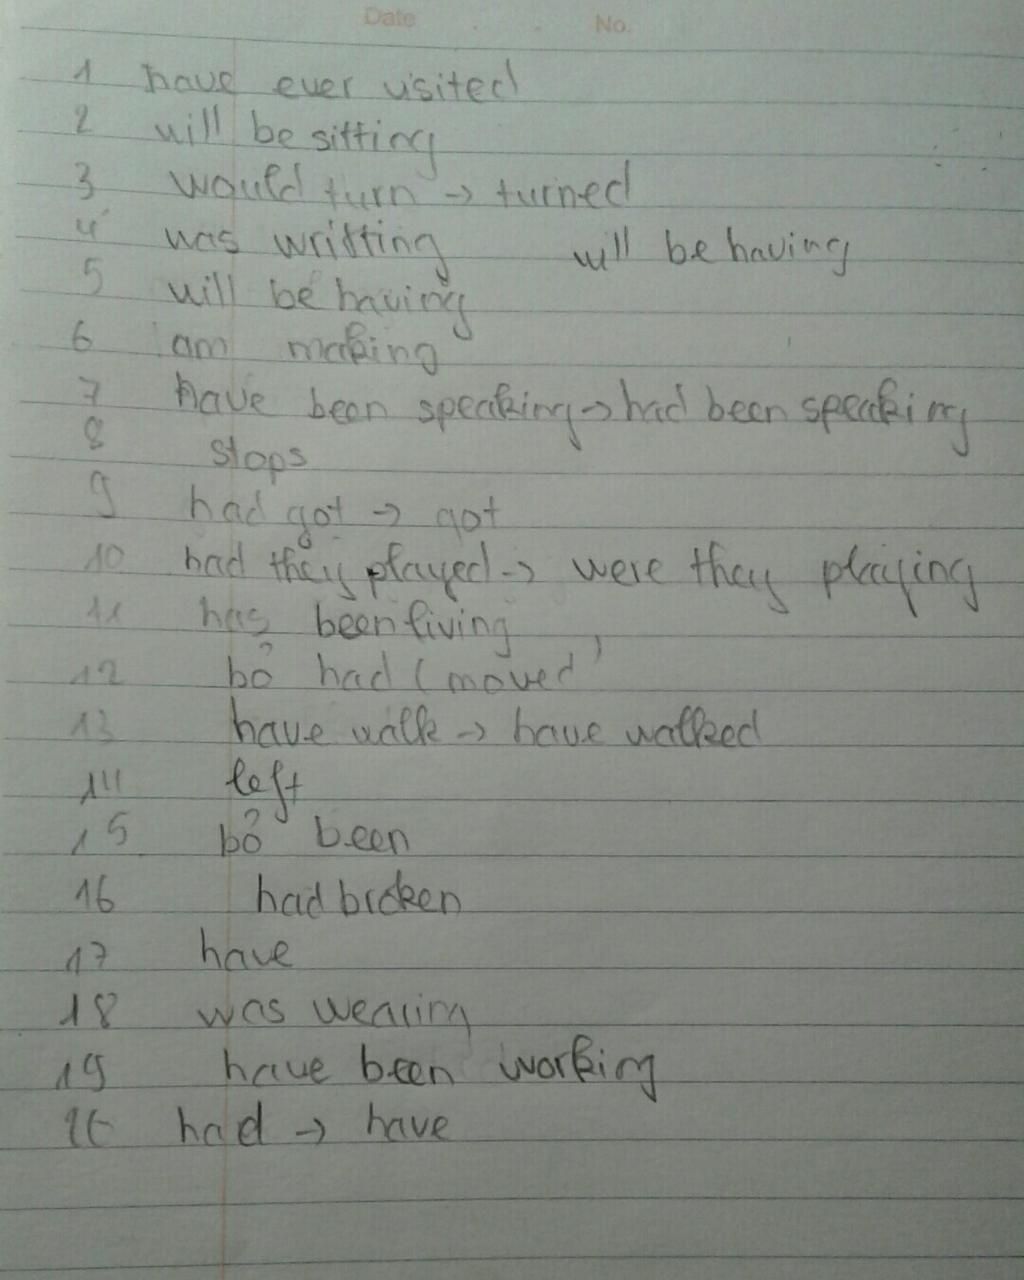 Date No.
1 have ever visited
2 will be sitting
3 would turn → turned
4 was writting will be having
5 will be having
6 am making
7 have been speaking → had been speaking
8 stops
9 had got → got
10 had they played → were they playing
11 has been living
12 bỏ had (moved)
13 have walk → have walked
14 left
15 bỏ been
16 had broken
17 have
18 was wearing
19 have been working
had → have